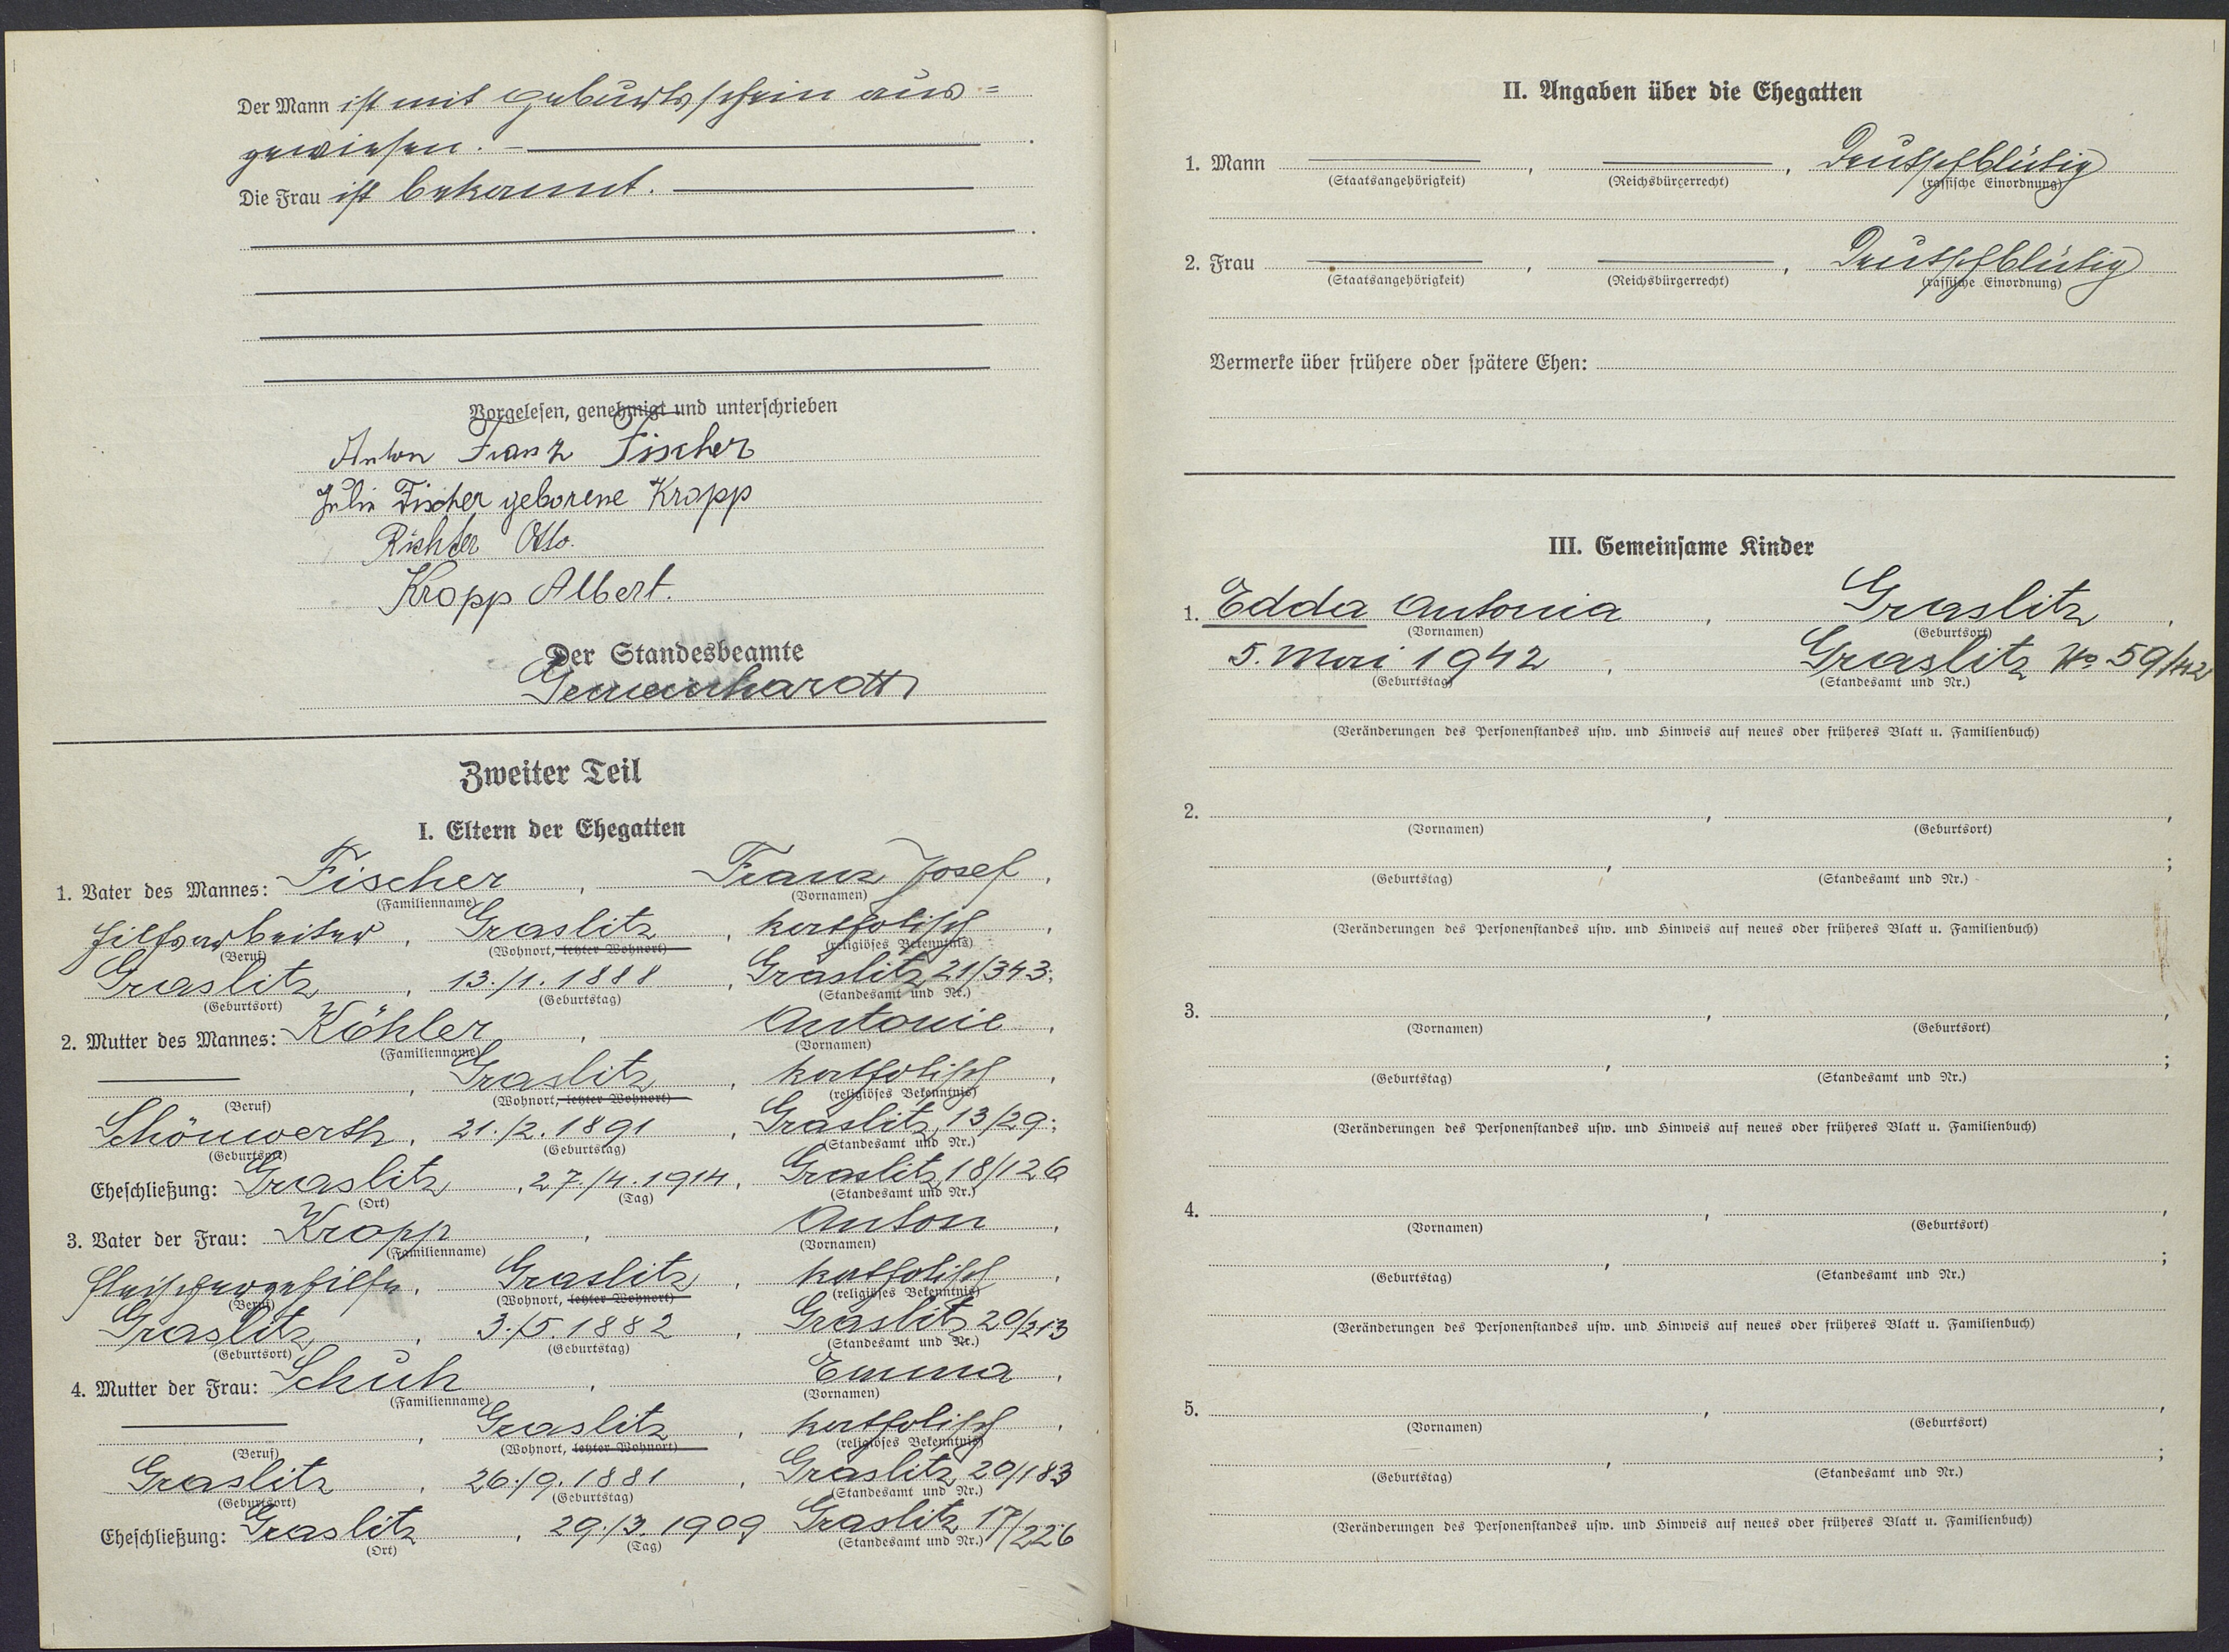 Der Mann ist mit Geburtsschein aus=
gewiesen. –
Die Frau ist bekannt.
Vorgelesen, genehmigt und unterschrieben
Anton Franz Fischer
Julie Fischer geborene Kropp
Richter Otto.
Kropp Albert.
Der Standesbeamte
Zweiter Teil
I. Eltern der Ehegatten
1. Vater des Mannes: Fischer, Franz Josef,
(Familienname) (Vornamen)
Hilfsarbeiter, Graslitz, katholisch,
(Beruf) (Wohnort, letzter Wohnort) (religiöses Bekenntnis)
Graslitz, 13./1. 1888, Graslitz 21/343;
(Geburtsort) (Geburtstag) (Standesamt und Nr.)
2. Mutter des Mannes: Köhler, Antonie,
(Familienname) (Vornamen)
, Graslitz, katholisch,
(Beruf) (Wohnort, letzter Wohnort) (religiöses Bekenntnis)
Schönwerth, 21./2. 1891, Graslitz, 13/29;
(Geburtsort) (Geburtstag) (Standesamt und Nr.)
Eheschließung: Graslitz, 27./4. 1914, Graslitz, 18/126
(Ort) (Tag) (Standesamt und Nr.)
3. Vater der Frau: Kropp, Anton,
(Familienname) (Vornamen)
Fleischergehilfe, Graslitz, katholisch,
(Beruf) (Wohnort, letzter Wohnort) (religiöses Bekenntnis)
Graslitz, 3./5. 1882, Graslitz 20/213
(Geburtsort) (Geburtstag) (Standesamt und Nr.)
4. Mutter der Frau: Schuh, Emma,
(Familienname) (Vornamen)
, Graslitz, katholisch,
(Beruf) (Wohnort, letzter Wohnort) (religiöses Bekenntnis)
Graslitz, 26./9. 1881, Graslitz, 20/183
(Geburtsort) (Geburtstag) (Standesamt und Nr.)
Eheschließung: Graslitz, 29./3. 1909 Graslitz 17/226
(Ort) (Tag) (Standesamt und Nr.)
II. Angaben über die Ehegatten
1. Mann , , Deutschblütig
(Staatsangehörigkeit) (Reichsbürgerrecht) (rassische Einordnung)
2. Frau , , Deutschblütig
(Staatsangehörigkeit) (Reichsbürgerrecht) (rassische Einordnung)
Vermerke über frühere oder spätere Ehen:
III. Gemeinsame Kinder
1. Edda Antonia, Graslitz,
(Vornamen) (Geburtsort)
5. Mai 1942, Graslitz No 59/42
(Geburtstag) (Standesamt und Nr.)
(Veränderungen des Personenstandes usw. und Hinweis auf neues oder früheres Blatt u. Familienbuch)
2. , ,
(Vornamen) (Geburtsort)
, ;
(Geburtstag) (Standesamt und Nr.)
(Veränderungen des Personenstandes usw. und Hinweis auf neues oder früheres Blatt u. Familienbuch)
3. , ,
(Vornamen) (Geburtsort)
, ;
(Geburtstag) (Standesamt und Nr.)
(Veränderungen des Personenstandes usw. und Hinweis auf neues oder früheres Blatt u. Familienbuch)
4. , ,
(Vornamen) (Geburtsort)
, ;
(Geburtstag) (Standesamt und Nr.)
(Veränderungen des Personenstandes usw. und Hinweis auf neues oder früheres Blatt u. Familienbuch)
5. , ,
(Vornamen) (Geburtsort)
, ;
(Geburtstag) (Standesamt und Nr.)
(Veränderungen des Personenstandes usw. und Hinweis auf neues oder früheres Blatt u. Familienbuch)